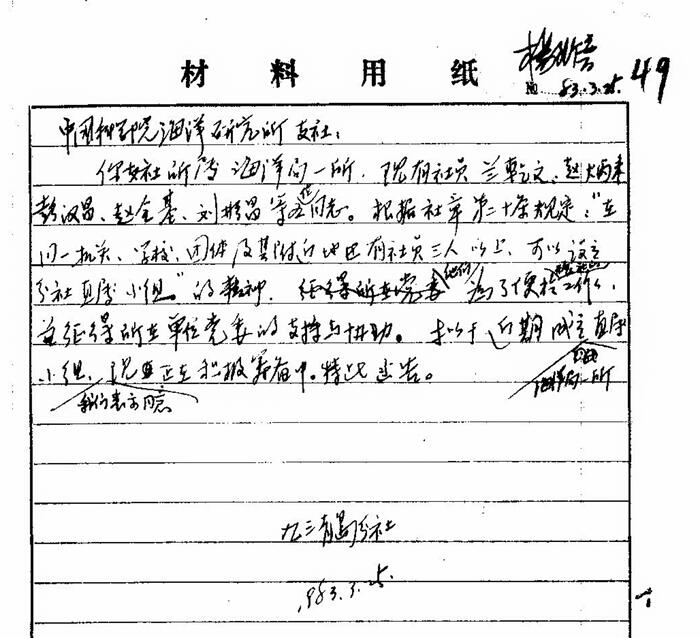 材料用纸
№ 83.3.25. 49
中国科学院海洋研究所支社:
你支社所属海洋局一所,现有社员兰乾文、赵
赵全基、刘 昌等 位同志。根据社章第二十条规定:"在
同一机关、学校、团体及其附近地区有社员三人以上,可以设立
分社直属小组。"的精神, 他们为了便于 工作,
并征得所在单位党委的支持与协助。拟于近期成立直属
小组,现 正在积极筹备中。特此 告。
我们表示同意
海洋局一所
九三青岛分社
1983.3.25.